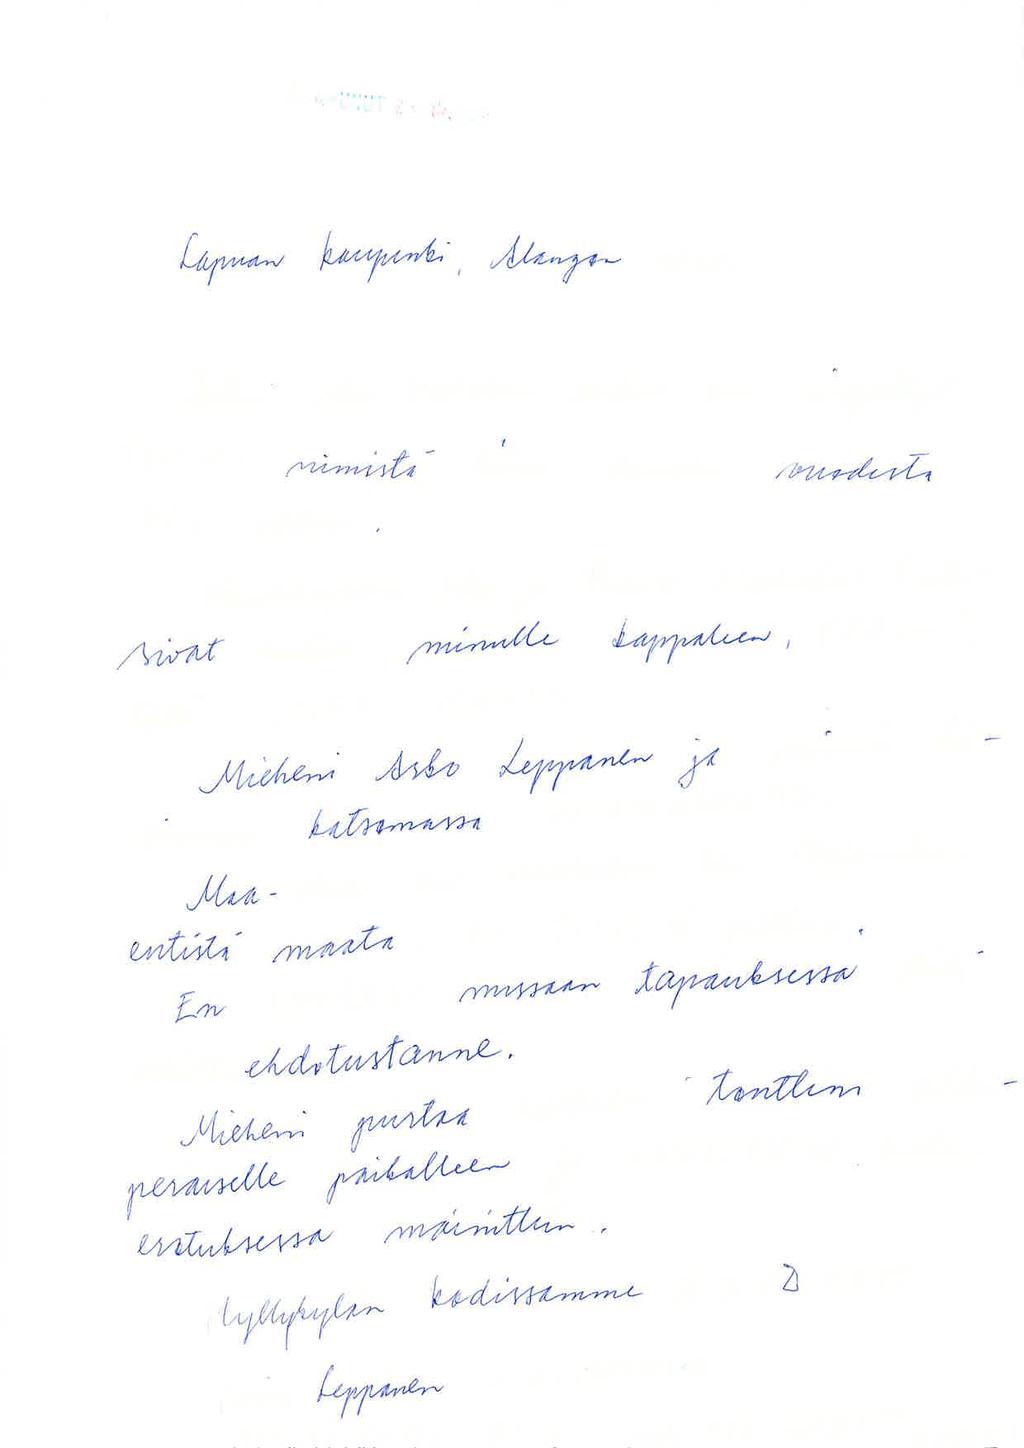 Lapuan kaupunki, Alangon
nimistä vuodesta
sivat minulle kappaleen,
Mieheni Asko Leppanen ja
katsomassa
Maa-
entistä maata
En missaan tapauksessa
ehdotustanne.
tonttim
Mieheni purtaa
peraiselle paikalleen
erotuksessa mainittun.
kyllykylan kodissamme
Leppanen